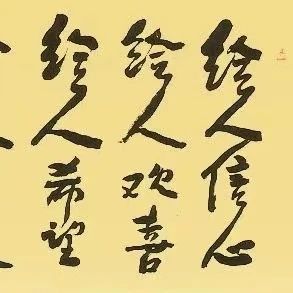 给人信心
给人欢喜
给人希望